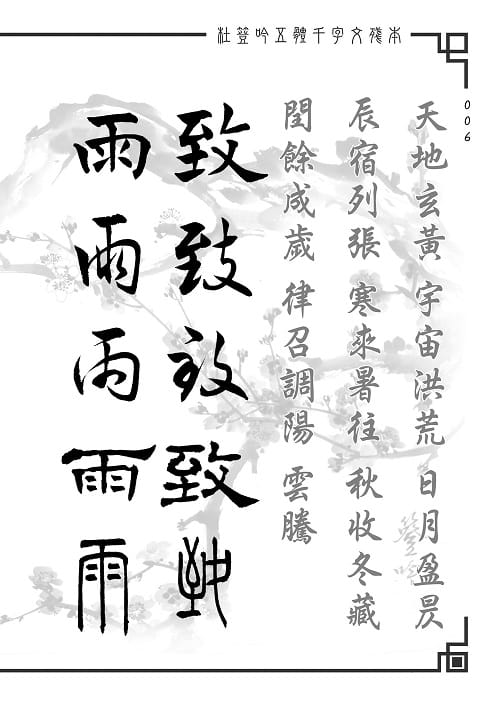 杜登吟五體千字文殘本
006
天地玄黃 宇宙洪荒 日月盈昃
辰宿列張 寒來暑往 秋收冬藏
閏餘成歲 律召調陽 雲騰
致致致致致
雨雨雨雨雨